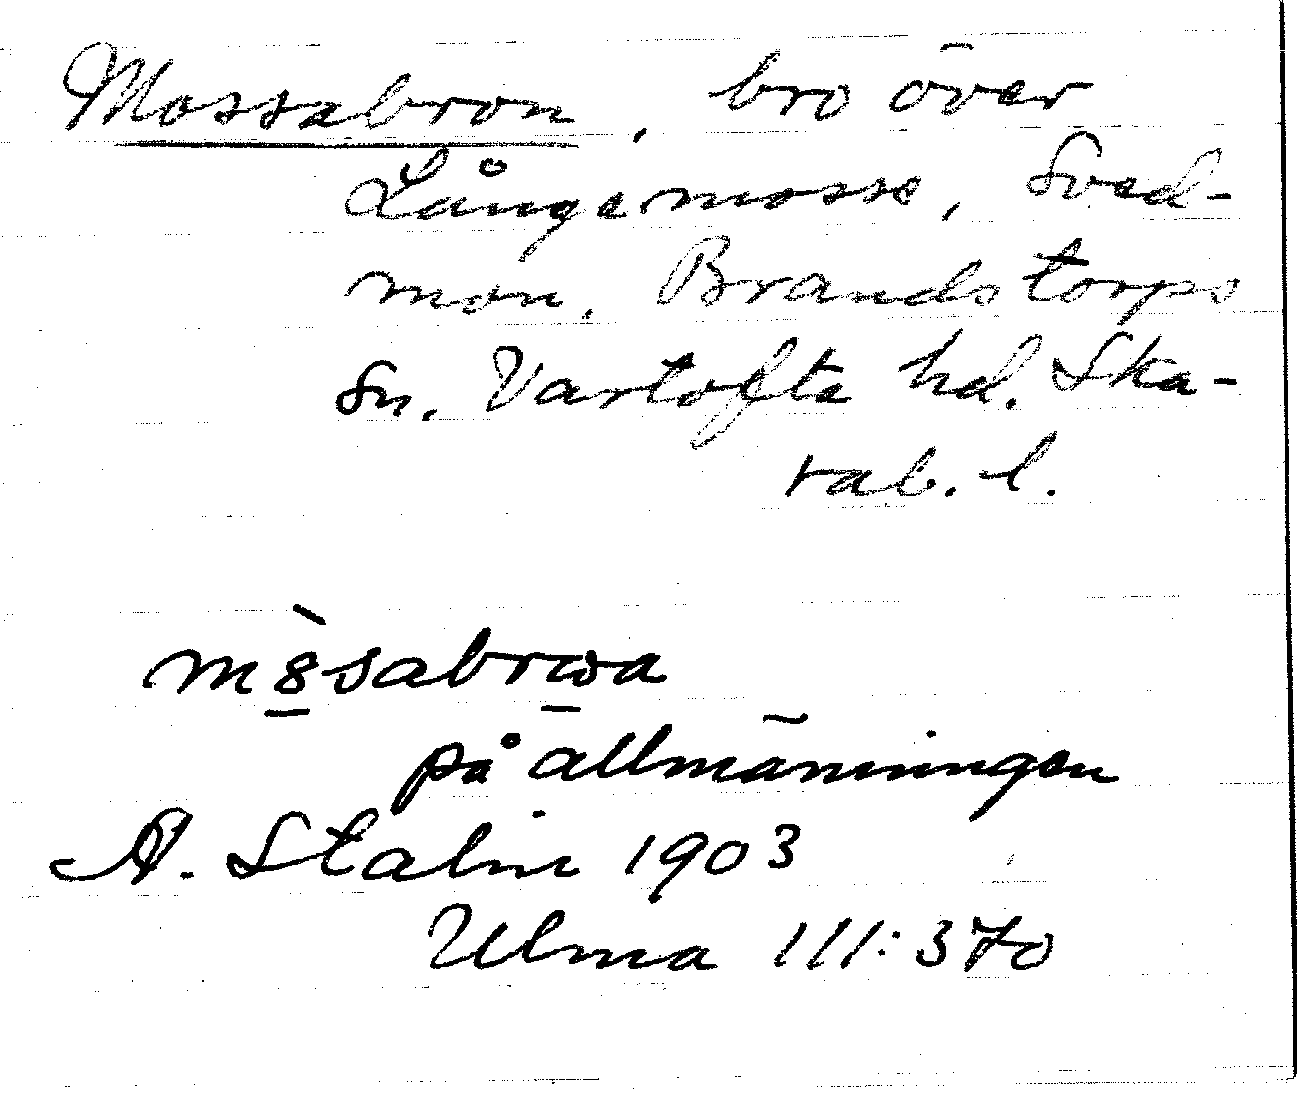 Mossabron, bro över
Långe mosse, Sved-
mon. Brandstorps
Sn. Vartofta hd. Ska-
rab. l.
på allmänningen
A. Stalin 1903
Ulma 111:370